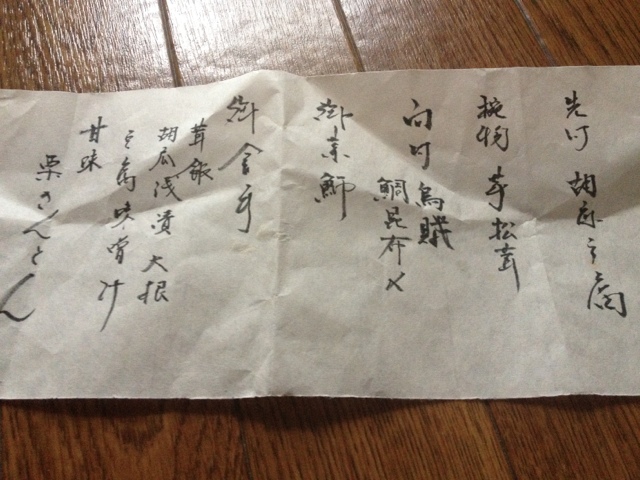 先付 胡麻豆腐
椀物 芋松茸
向付 烏賊
鯛昆布〆
御 鰤
御食事
茸飯
胡瓜浅漬 大根
豆腐味噌汁
甘味
栗きんとん